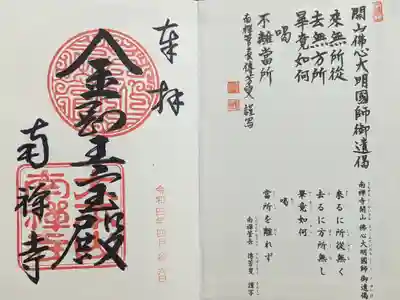 開山佛心大明國師御遺偈
來無所從
去無方所
畢竟如何
喝
不離當所
南禅管長傳芳叟 謹写
南禅寺開山 佛心大明國師御遺偈
来るに所従無く
去るに方所無し
畢竟如何
喝
當所を離れず
南禅管長 傳芳叟 謹写
奉拝
金剛王宝殿
南禅寺
令和四年四月